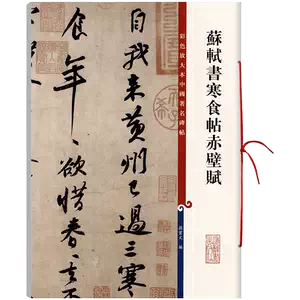 蘇軾書寒食帖赤壁賦
彩色放大本中國著名碑帖
孫寶文 編
自我來黃州已過三寒
食年年欲惜春春